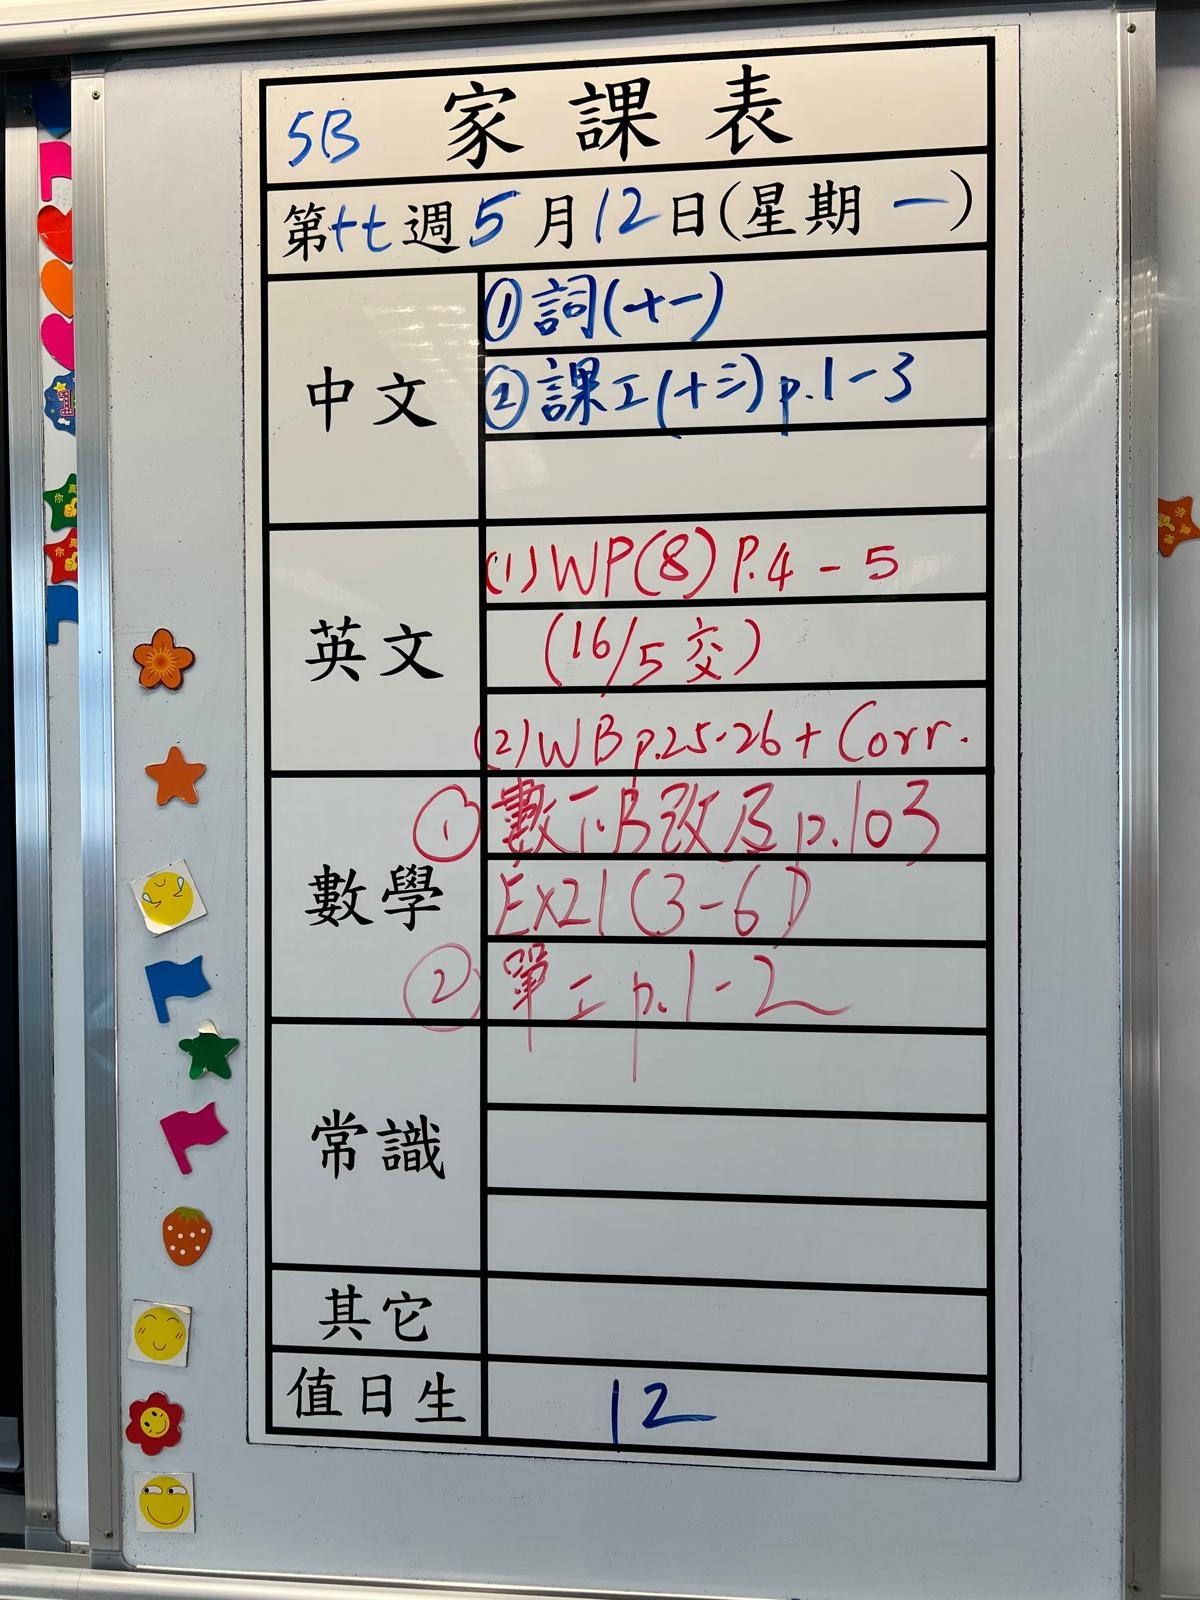 5B 家課表
第十七週5月12日(星期一)
中文
①詞(十一)
②課工(十三)p.1-3
英文
(1)WP(8)P.4-5
(16/5交)
(2)WB p.25-26+Corr.
數學
①數下B改及p.103
Ex21(3-6)
②單工p.1-2
常識
其它
值日生
12